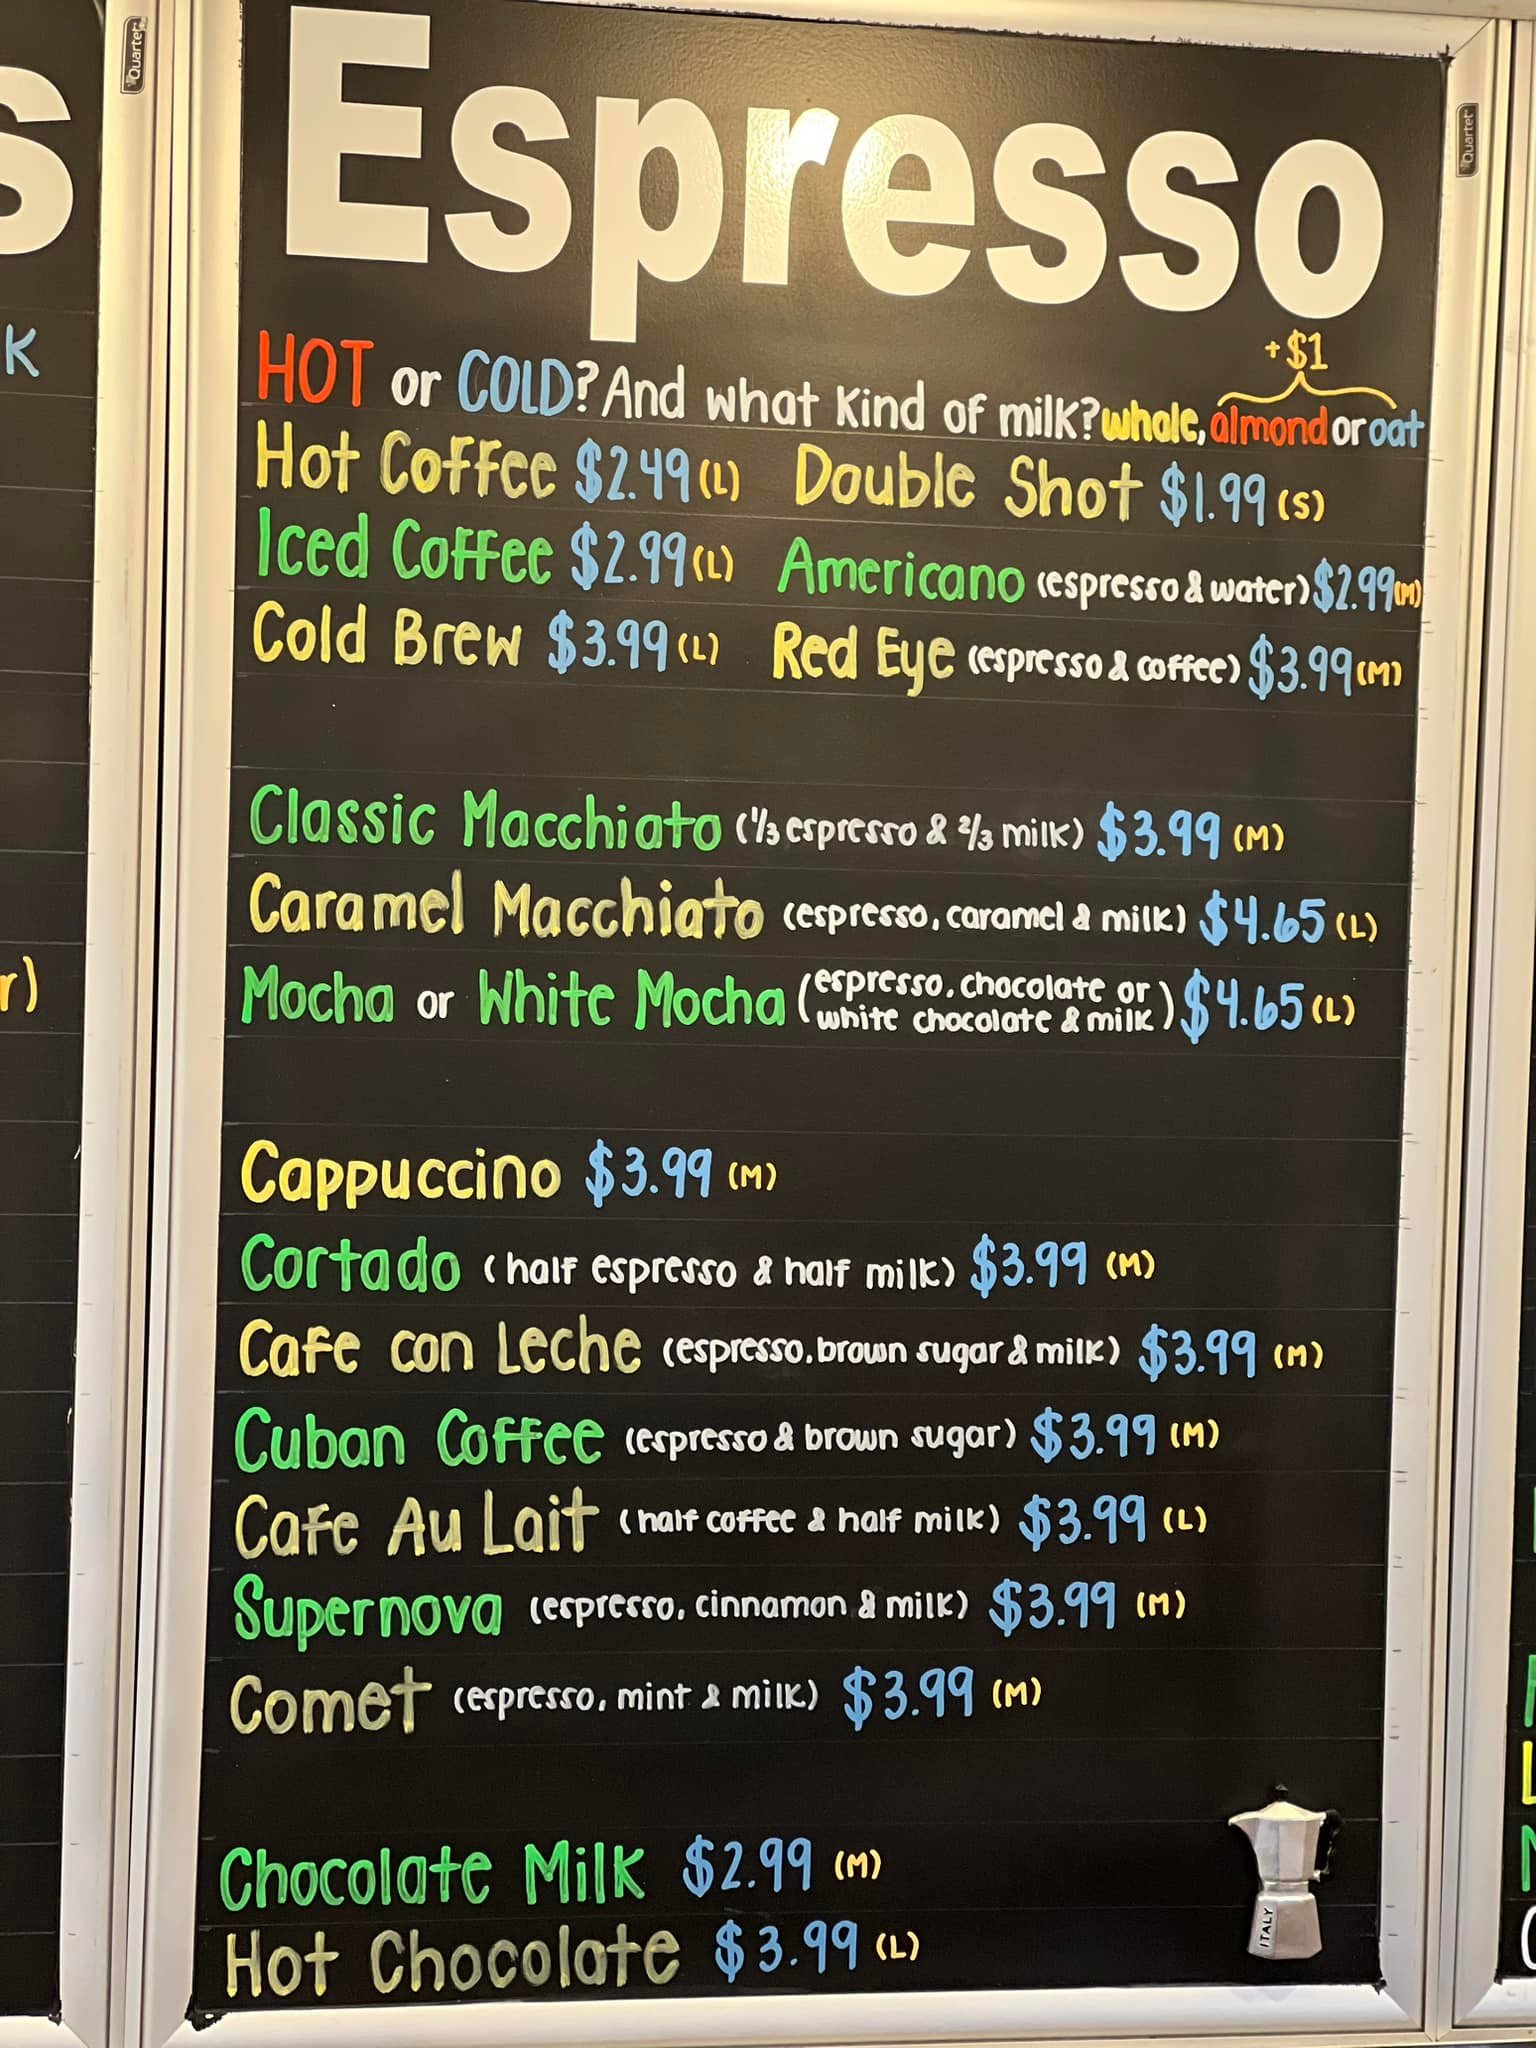 Quartet
Espresso
Quartet
s
K
+$1
HOT or COLD? And what kind of milk? whole, almond or oat
Hot Coffee $2.49 (L) Double Shot $1.99 (S)
Iced Coffee $2.99 (L) Americano (espresso & water) $2.99 (M)
Cold Brew $3.99 (L) Red Eye (espresso & coffee) $3.99 (M)
Classic Macchiato (1/3 espresso & 2/3 milk) $3.99 (M)
Caramel Macchiato (espresso, caramel & milk) $4.65 (L)
r)
Mocha or White Mocha (espresso, chocolate or
white chocolate & milk) $4.65 (L)
Cappuccino $3.99 (M)
Cortado (half espresso & half milk) $3.99 (M)
Cafe con Leche (espresso, brown sugar & milk) $3.99 (M)
Cuban Coffee (espresso & brown sugar) $3.99 (M)
Cafe Au Lait (half coffee & half milk) $3.99 (L)
Supernova (espresso, cinnamon & milk) $3.99 (M)
Comet (espresso, mint & milk) $3.99 (M)
Chocolate Milk $2.99 (M)
Hot Chocolate $3.99 (L)
ITALY